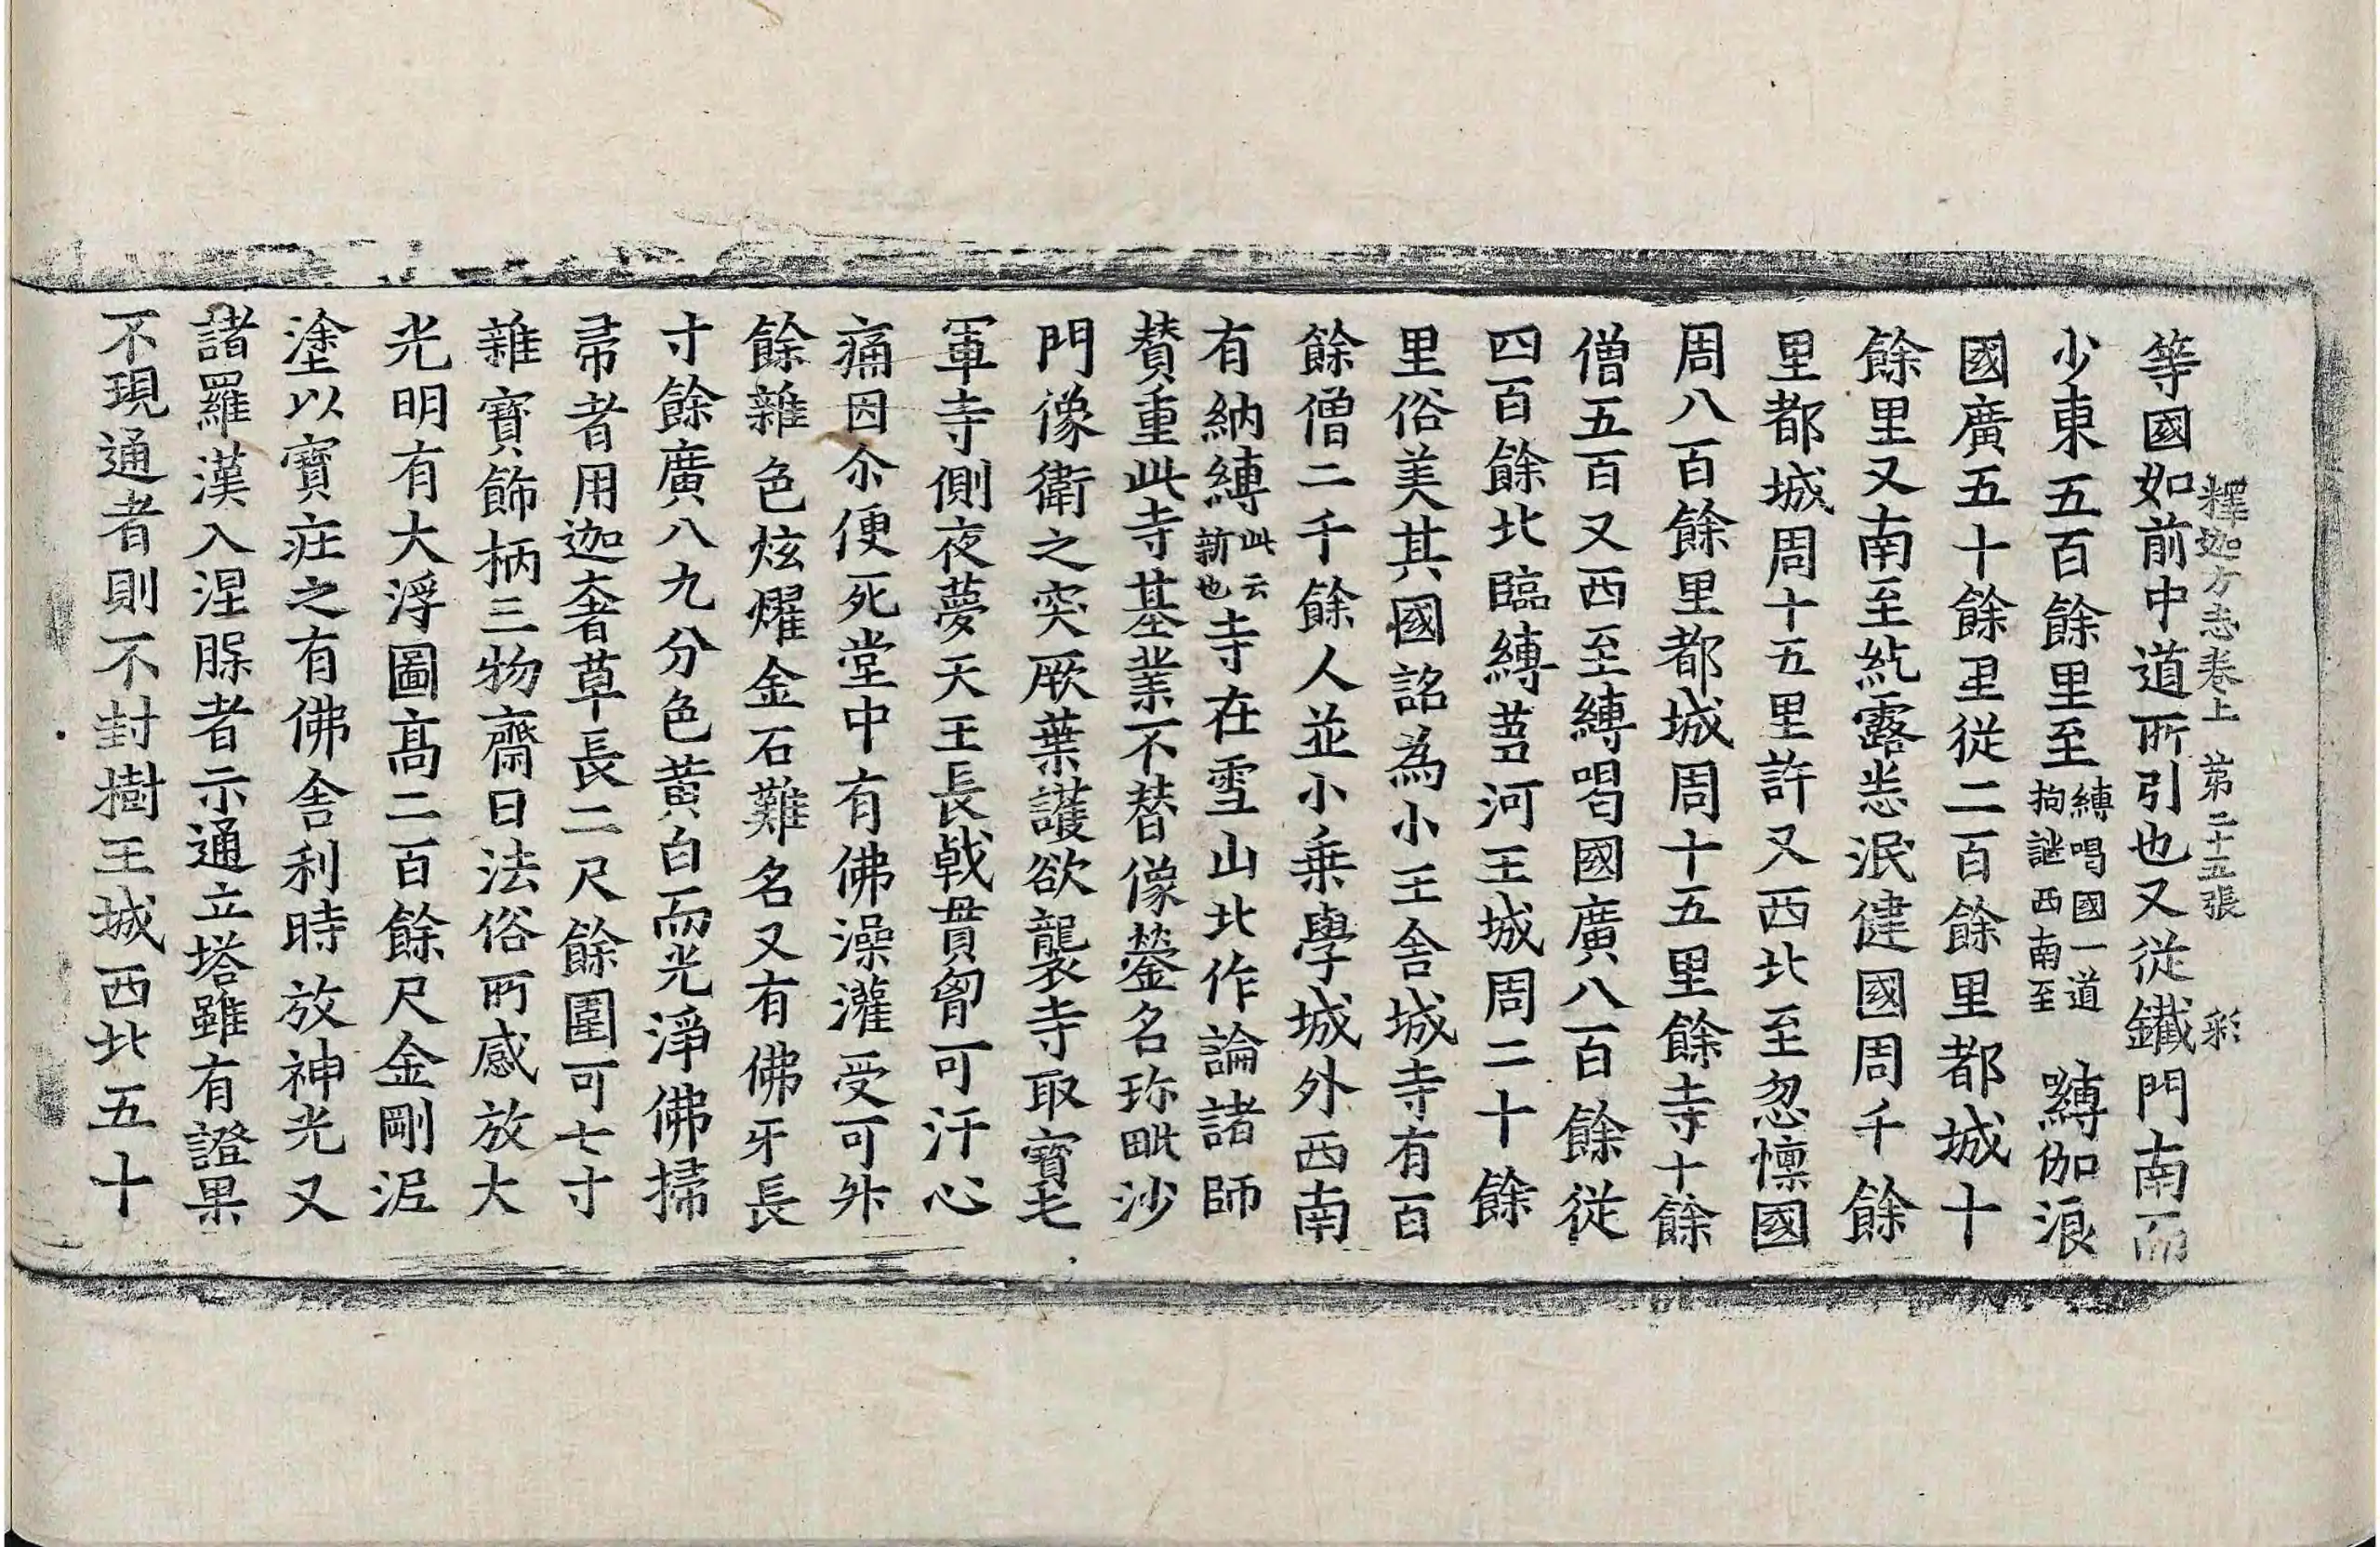 釋迦方志卷上 第二十五張 彩
等國如前中道所引也又從鐵門南而
少東五百餘里至縛喝國一道拘謎西南至縛伽浪
國廣五十餘里從二百餘里都城十
餘里又南至紇露悉泯健國周千餘
里都城周十五里許又西北至忽懍國
周八百餘里都城周十五里餘寺十餘
僧五百又西至縛喝國廣八百餘從
四百餘北臨縛芻河王城周二十餘
里俗美其國詺為小王舍城寺有百
餘僧二千餘人並小乗學城外西南
有納縛此云新也寺在雪山北作論諸師
賛重此寺基業不替像鎣名珎毗沙
門像衛之突厥葉護欲襲寺取寳毛
軍寺側夜夢天王長戟貫胷可汗心
痛因尒便死堂中有佛澡灌受可外
餘雜色炫燿金石難名又有佛牙長
寸餘廣八九分色黃白而光淨佛掃
帚者用迦奢草長二尺餘圍可七寸
雜寳飾柄三物齋日法俗所感放大
光明有大浮圖髙二百餘尺金剛泥
塗以寳莊之有佛舍利時放神光又
諸羅漢入涅槃者示通立塔雖有證果
不現通者則不封樹王城西北五十